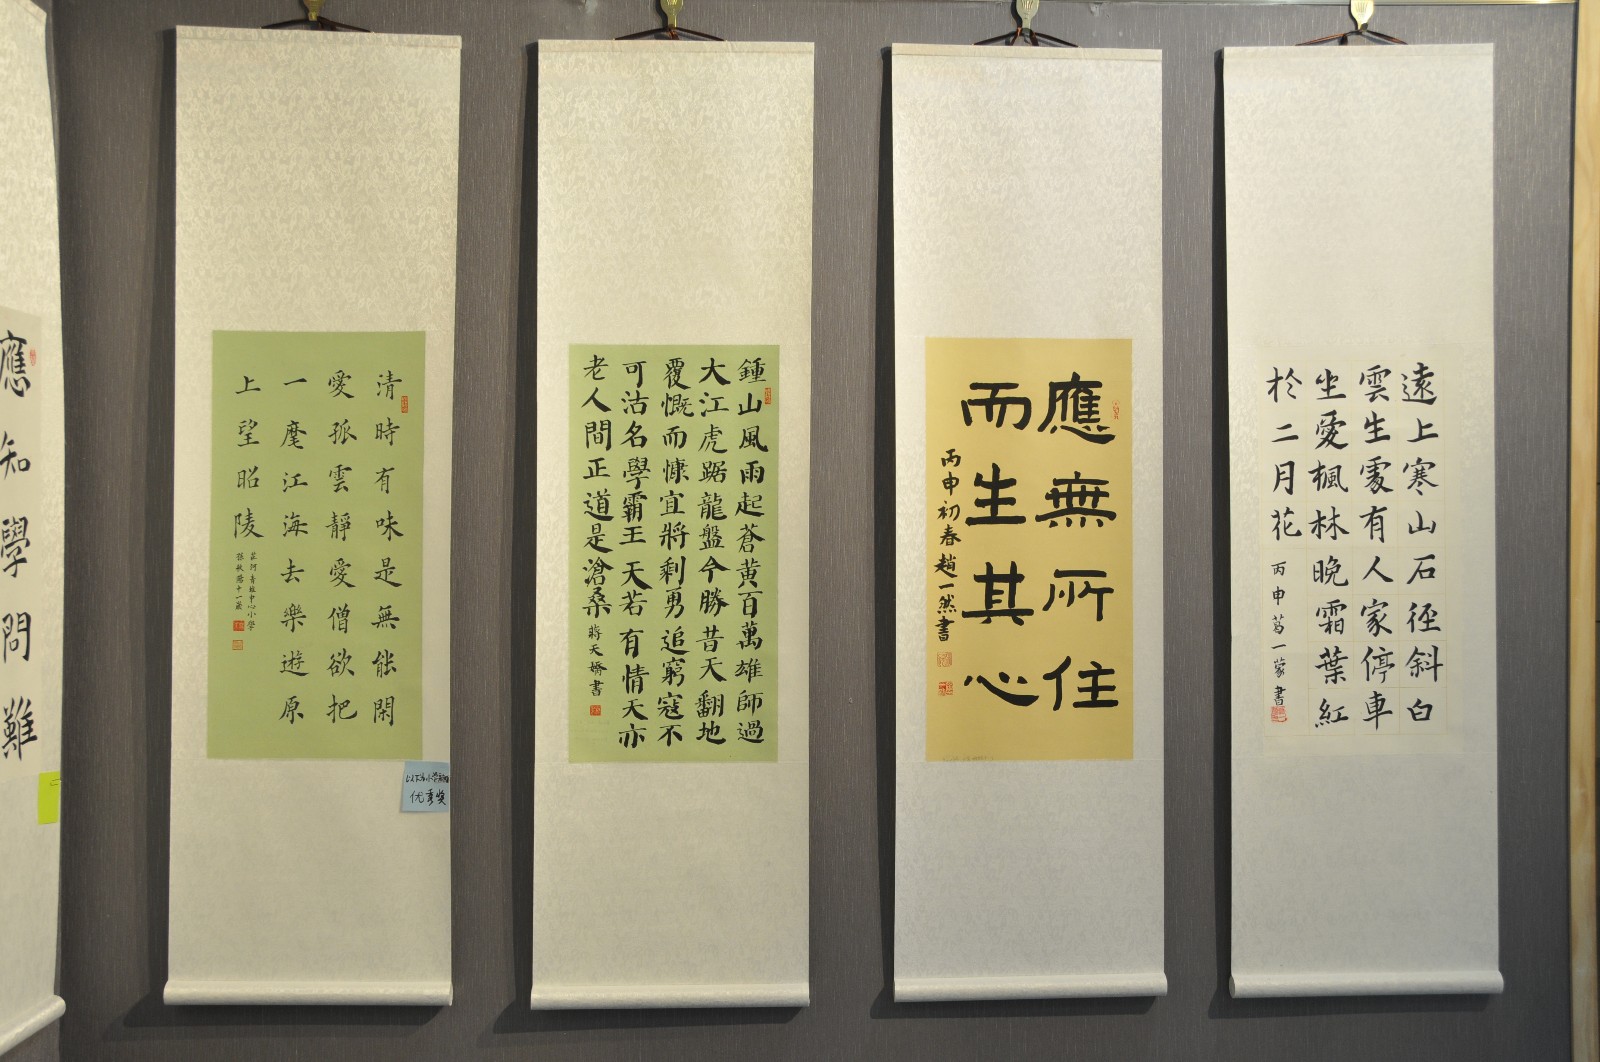 應知學問難
清時有味是無能閑
愛孤雲靜愛僧欲把
一麾江海去樂遊原
上望昭陵
莊河青堆中心小學
十一歲
以下为小学
优秀奖
鍾山風雨起蒼黄百萬雄師過
大江虎踞龍盤今勝昔天翻地
覆慨而慷宜將剩勇追窮寇不
可沽名學霸王天若有情天亦
老人間正道是滄桑 蔣天嬌書
應無所住
而生其心
丙申初春趙一然書
遠上寒山石徑斜白
雲生處有人家停車
坐愛楓林晚霜葉紅
於二月花 丙申葛一蒙書